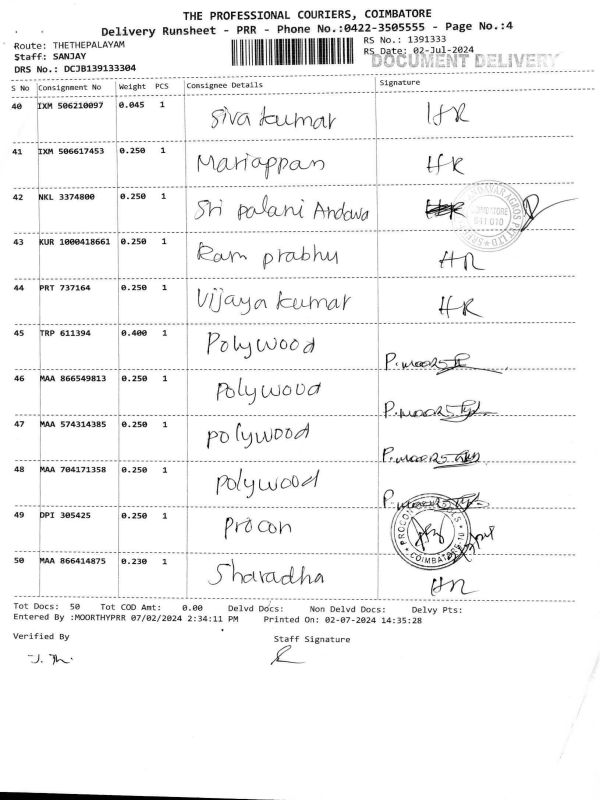 THE PROFESSIONAL COURIERS, COIMBATORE
Delivery Runsheet - PRR - Phone No.:0422-3505555 - Page No.:4
Route: THETHEPALAYAM RS No.: 1391333
Staff: SANJAY RS Date: 02-Jul-2024
DRS No.: DCJB139133304 DOCUMENT DELIVERY
S No Consignment No Weight PCS Consignee Details Signature
40 IXM 506210097 0.045 1 Siva kumar HR
41 IXM 506617453 0.250 1 Mariappan HR
42 NKL 3374800 0.250 1 Sri palani Andava
43 KUR 1000418661 0.250 1 Ram prabhu HR
44 PRT 737164 0.250 1 Vijaya kumar HR
45 TRP 611394 0.400 1 Polywood
46 MAA 866549813 0.250 1 polywood
47 MAA 574314385 0.250 1 polywood
48 MAA 704171358 0.250 1 polywood
49 DPI 305425 0.250 1 Procon PROCON COIMBATORE
50 MAA 866414875 0.230 1 Sharadha HR
Tot Docs: 50 Tot COD Amt: 0.00 Delvd Docs: Non Delvd Docs: Delvy Pts:
Entered By :MOORTHYPRR 07/02/2024 2:34:11 PM Printed On: 02-07-2024 14:35:28
Verified By Staff Signature